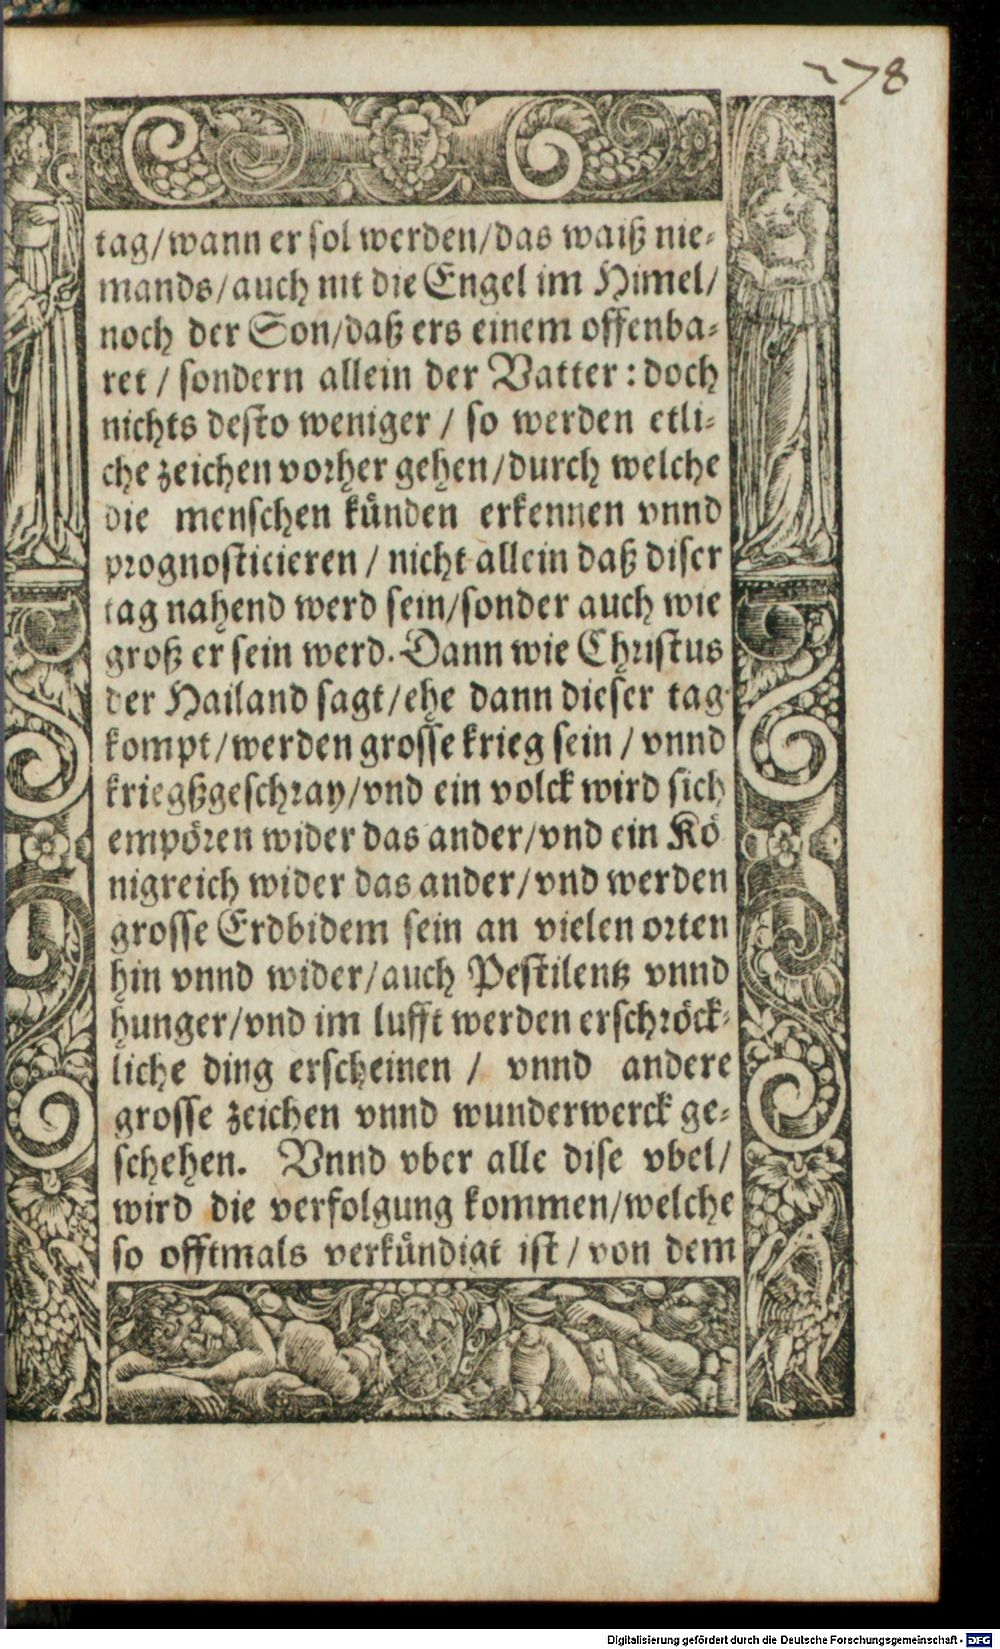 278
tag/wann er sol werden/das waiß nie-
mands/auch nit die Engel im Himel/
noch der Son/daß ers einem offenba-
ret / sondern allein der Vatter : doch
nichts desto weniger / so werden etli-
che zeichen vorher gehen/durch welche
die menschen künden erkennen vnnd
prognosticieren / nicht allein daß diser
tag nahend werd sein/sonder auch wie
groß er sein werd. Dann wie Christus
der Hailand sagt/ehe dann dieser tag
kompt/werden grosse krieg sein / vnnd
kriegßgeschray/vnd ein volck wird sich
empören wider das ander/vnd ein Kö
nigreich wider das ander/vnd werden
grosse Erdbidem sein an vielen orten
hin vnnd wider/auch Pestilentz vnnd
hunger/vnd im lufft werden erschröck-
liche ding erscheinen / vnnd andere
grosse zeichen vnnd wunderwerck ge-
schehen. Vnnd vber alle dise vbel/
wird die verfolgung kommen/welche
so offtmals verkündigt ist / von dem
Digitalisierung gefördert durch die Deutsche Forschungsgemeinschaft - DFG